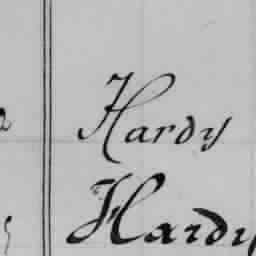 Hardy
Hardy